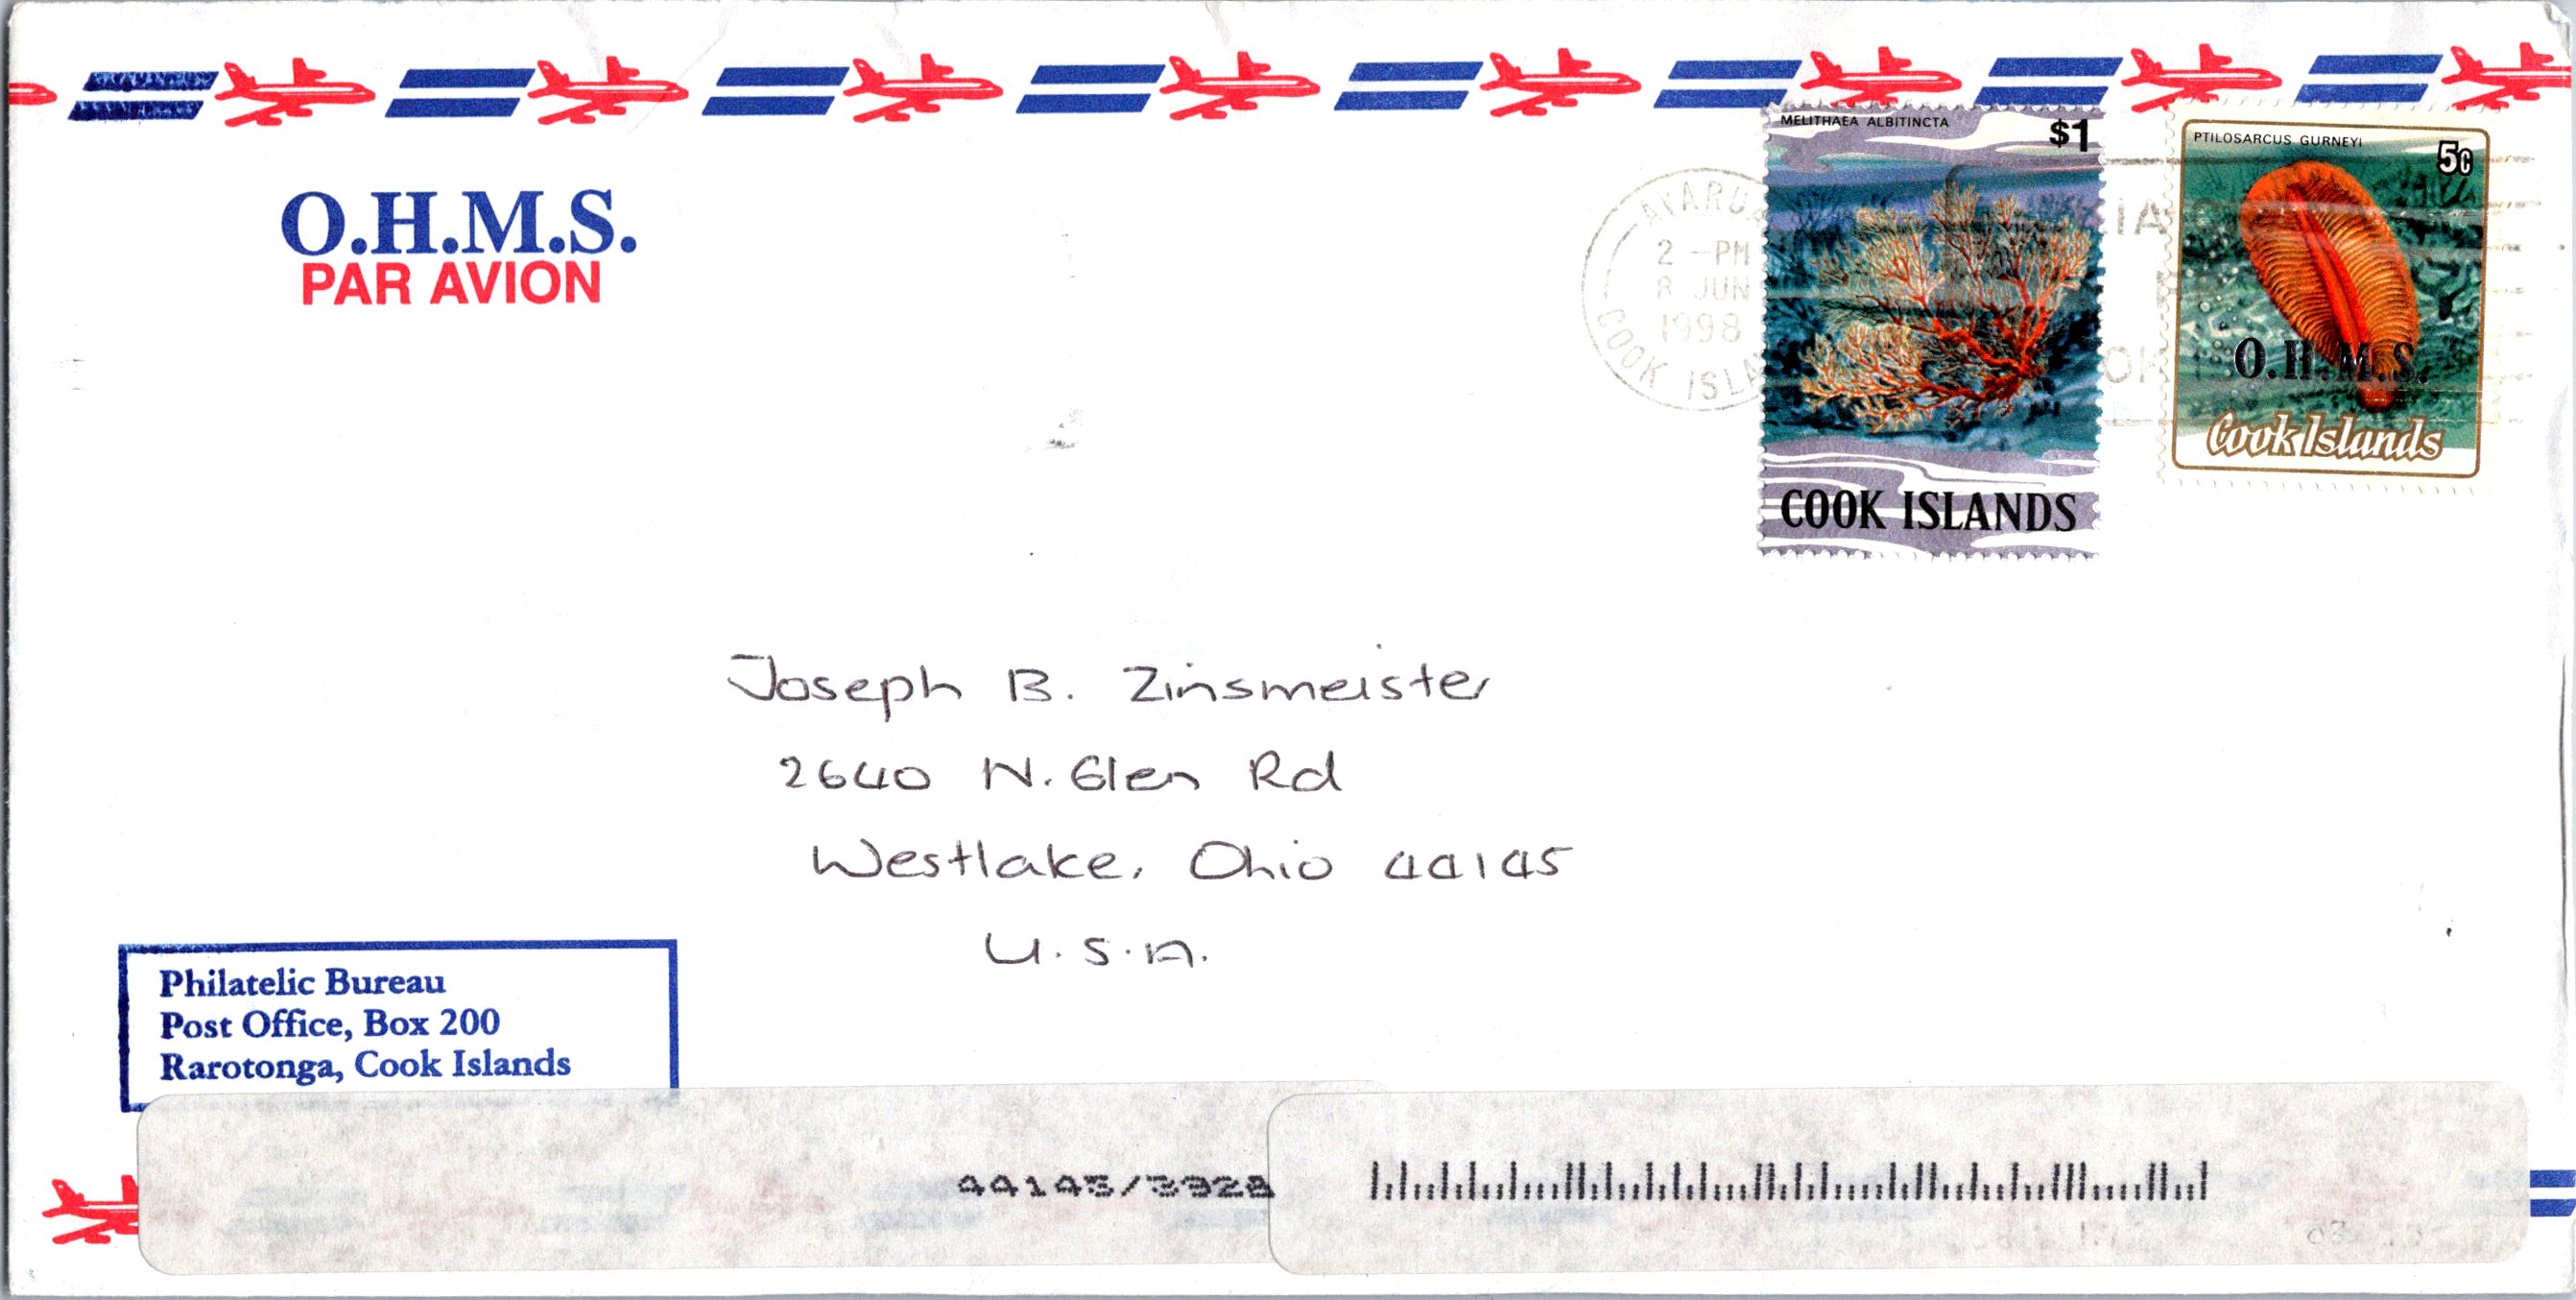 O.H.M.S.
PAR AVION
MELITHAEA ALBITINCTA
$1
COOK ISLANDS
PTILOSARCUS GURNEYI
5c
O.H.M.S.
Cook Islands
AVARUA
2 -PM
8 JUN
1998
COOK
Joseph B. Zinsmeister
2640 N. Glen Rd
Westlake, Ohio 44145
U.S.A.
Philatelic Bureau
Post Office, Box 200
Rarotonga, Cook Islands
44145/3928